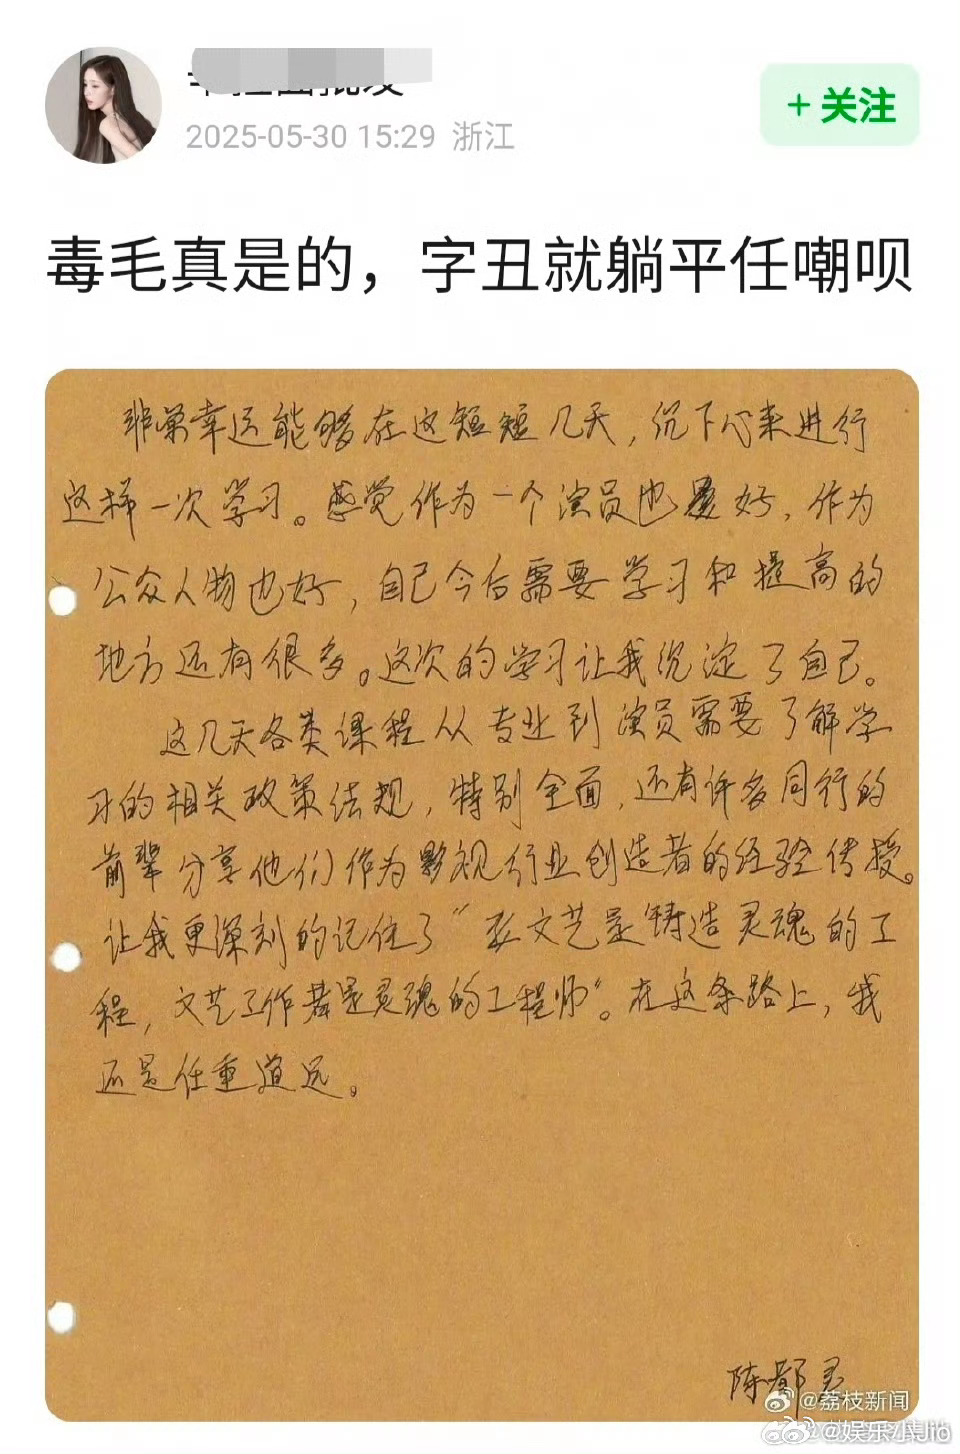 2025-05-30 15:29 浙江
+ 关注
毒毛真是的，字丑就躺平任嘲呗
非常幸运能够在这短短几天，沉下心来进行
这样一次学习。感觉作为一个演员也好，作为
公众人物也好，自己今后需要学习和提高的
地方还有很多。这次的学习让我沉淀了自己。
这几天各类课程从专业到演员需要了解学
习的相关政策法规，特别全面，还有许多同行的
前辈分享他们作为影视行业创造者的经验传授。
让我更深刻的记住了“文艺是铸造灵魂的工
程，文艺工作者是灵魂的工程师”。在这条路上，我
还是任重道远。
陈都灵
@荔枝新闻
@娱乐小Jio